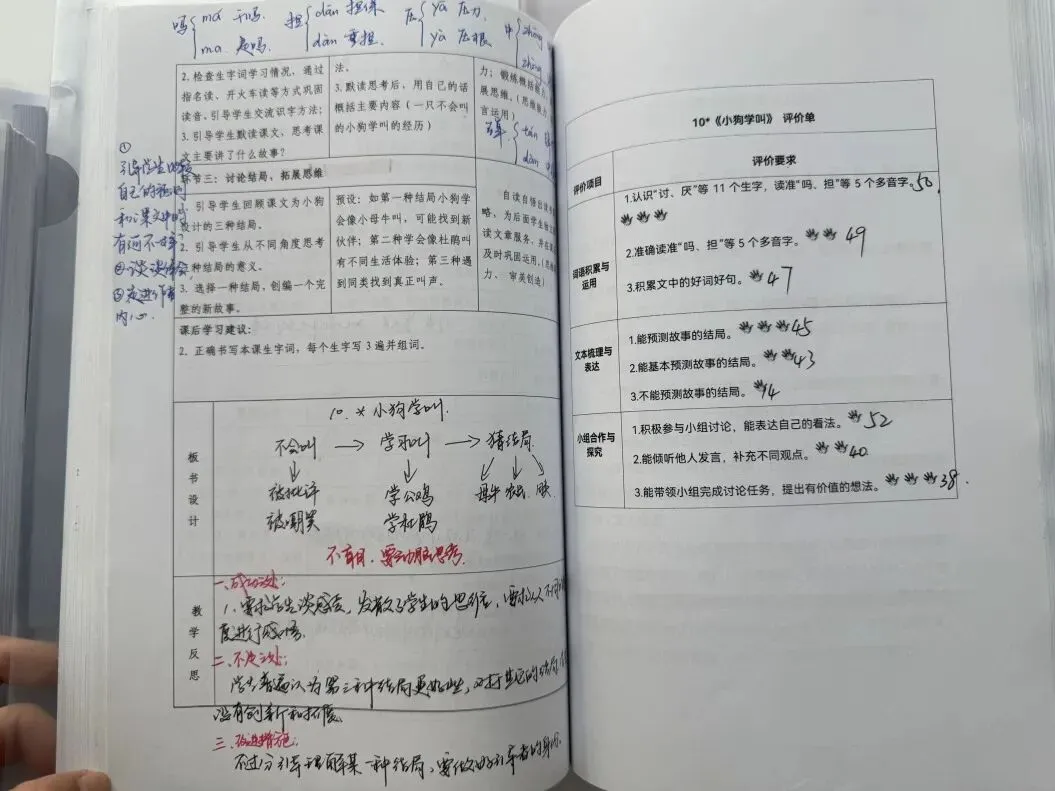 吗 má 干吗 担 dān 担保 压 yā 压力 中 zhōng
ma 走吗 dàn 重担 yà 压根 zhòng
2. 检查生字词学习情况，通过
指名读、开火车读等方式巩固
读音。引导学生交流识字方法；
3. 引导学生默读课文，思考课
文主要讲了什么故事？
法。
3. 默读思考后，用自己的话
概括主要内容（一只不会叫
的小狗学叫的经历）
力；锻炼概括能
展思维。（思维能力
言运用）
弹 tán
dàn
环节三：讨论结局、拓展思维
①
引导学生
自己的
和课文中的
有何不
②谈谈体会
③走进作者
内心.
引导学生回顾课文为小狗
设计的三种结局。
2. 引导学生从不同角度思考
三种结局的意义。
3. 选择一种结局，创编一个完
整的新故事。
预设：如第一种结局小狗学
会像小母牛叫，可能找到新
伙伴；第二种学会像杜鹃叫
有不同生活体验；第三种遇
到同类找到真正叫声。
自读自悟出
略，为后面学生独立
读文章服务，并在
及时巩固运用。（思维
力、 审美创造）
课后学习建议：
2. 正确书写本课生字词，每个生字写 3 遍并组词。
板书设计
10.*小狗学叫.
不会叫 → 学习叫 → 猜结局.
被批评 学公鸡 母牛 农民 朋
被嘲笑 学杜鹃
不盲目，要动脑思考.
教学反思
一、成功之处：
1. 要求学生谈感受，发散了学生的思维，要求从不同角
度进行感悟.
二、不足之处：
学生普遍认为第三种结局更好些，对于其它的结局
没有创新和拓展
三、改进措施：
不过分引导理解某一种结局，要做好引导者的身份.
10*《小狗学叫》 评价单
评价项目
评价要求
词语积累与运用
1.认识“讨、厌”等 11 个生字，读准“吗、担”等 5 个多音字。50
2.准确读准“吗、担”等 5 个多音字。 49
3.积累文中的好词好句。 47
文本梳理与表达
1.能预测故事的结局。 45
2.能基本预测故事的结局。 43
3.不能预测故事的结局。 4
小组合作与探究
1.积极参与小组讨论，能表达自己的看法。 52
2.能倾听他人发言，补充不同观点。 40
3.能带领小组完成讨论任务，提出有价值的想法。 38.